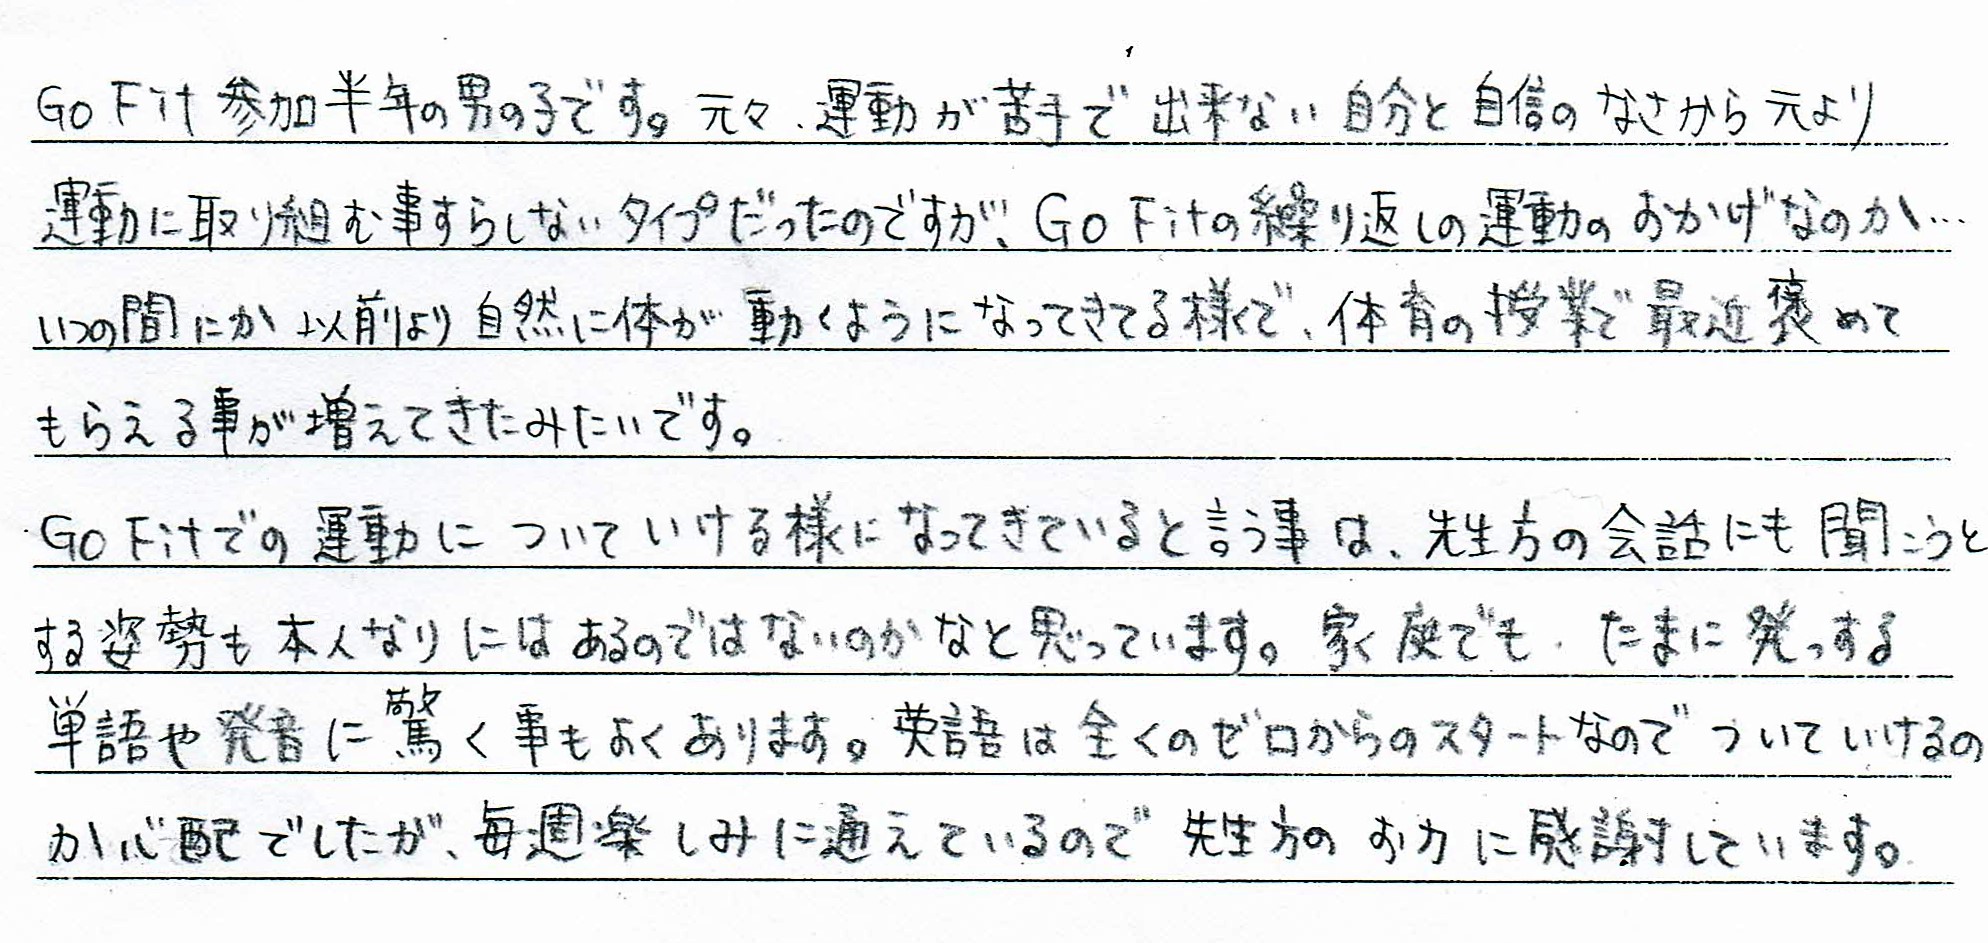 Go Fit 参加半年の男の子です。元々、運動が苦手で出来ない自分と自信のなさから元より
運動に取り組む事すらしないタイプだったのですが、Go Fitの繰り返しの運動のおかげなのか…
いつの間にか以前より自然に体が動くようになってきてる様で、体育の授業で最近褒めて
もらえる事が増えてきたみたいです。
Go Fitでの運動についていける様になってきていると言う事は、先生方の会話にも聞こうと
する姿勢も本人なりにはあるのではないのかなと思っています。家庭でも、たまに発っする
単語や発音に驚く事もよくあります。英語は全くのゼロからのスタートなのでついていけるの
か心配でしたが、毎週楽しみに通えているので先生方のお力に感謝しています。